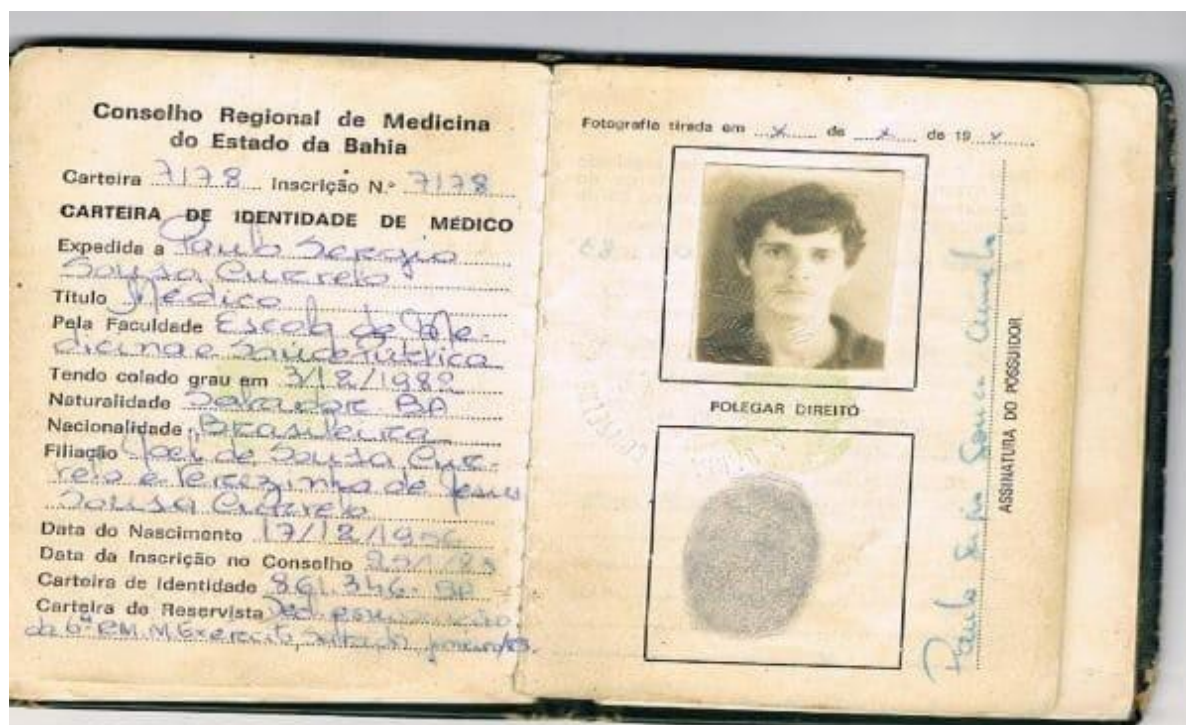 Conselho Regional de Medicina
do Estado da Bahia
Carteira 7178 Inscrição N.º 7178
CARTEIRA DE IDENTIDADE DE MÉDICO
Expedida a Paulo Sergio
Sousa Curvelo
Título Médico
Pela Faculdade Escola de Me-
dicina e Saúde Pública
Tendo colado grau em 3/12/1982
Naturalidade Salvador BA
Nacionalidade Brasileira
Filiação Joel de Sousa Cur-
velo e Terezinha de Jesus
Sousa Curvelo
Data do Nascimento 17/12/1956
Data da Inscrição no Conselho
Carteira de Identidade 861.346. BA
Carteira de Reservista
da 6ª RM. M. Exercito,
Fotografia tirada em x de x de 19 x
POLEGAR DIREITO
ASSINATURA DO POSSUIDOR
Paulo Sergio Sousa Curvelo